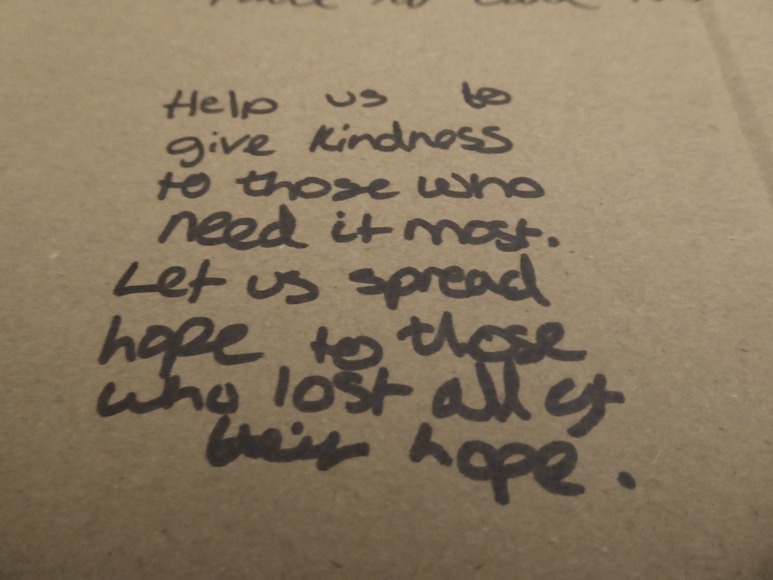 Help us to
give kindness
to those who
need it most.
Let us spread
hope to those
who lost all of
their hope.